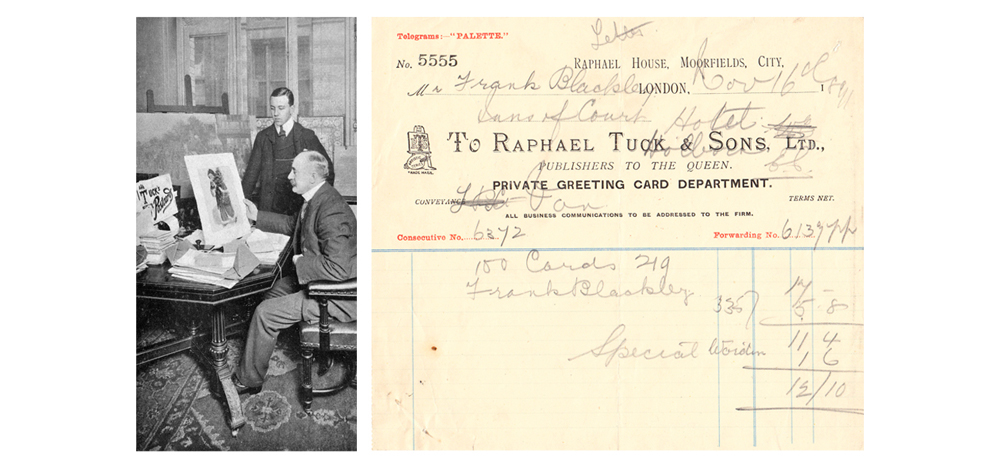 Tuck
Letter
Telegrams:—"PALETTE."
No. 5555
RAPHAEL HOUSE, MOORFIELDS, CITY,
Mr Frank Blackley LONDON, Nov 16 1891
Inns of Court Hotel
Holborn
To RAPHAEL TUCK & SONS, LTD.,
TRADE MARK.
PUBLISHERS TO THE QUEEN.
PRIVATE GREETING CARD DEPARTMENT.
CONVEYANCE Van TERMS NET.
ALL BUSINESS COMMUNICATIONS TO BE ADDRESSED TO THE FIRM.
Consecutive No. 6372 Forwarding No. 6137
100 Cards 219 17 -
Frank Blackley
33 5 8
11 4
Special 1 6
12/10